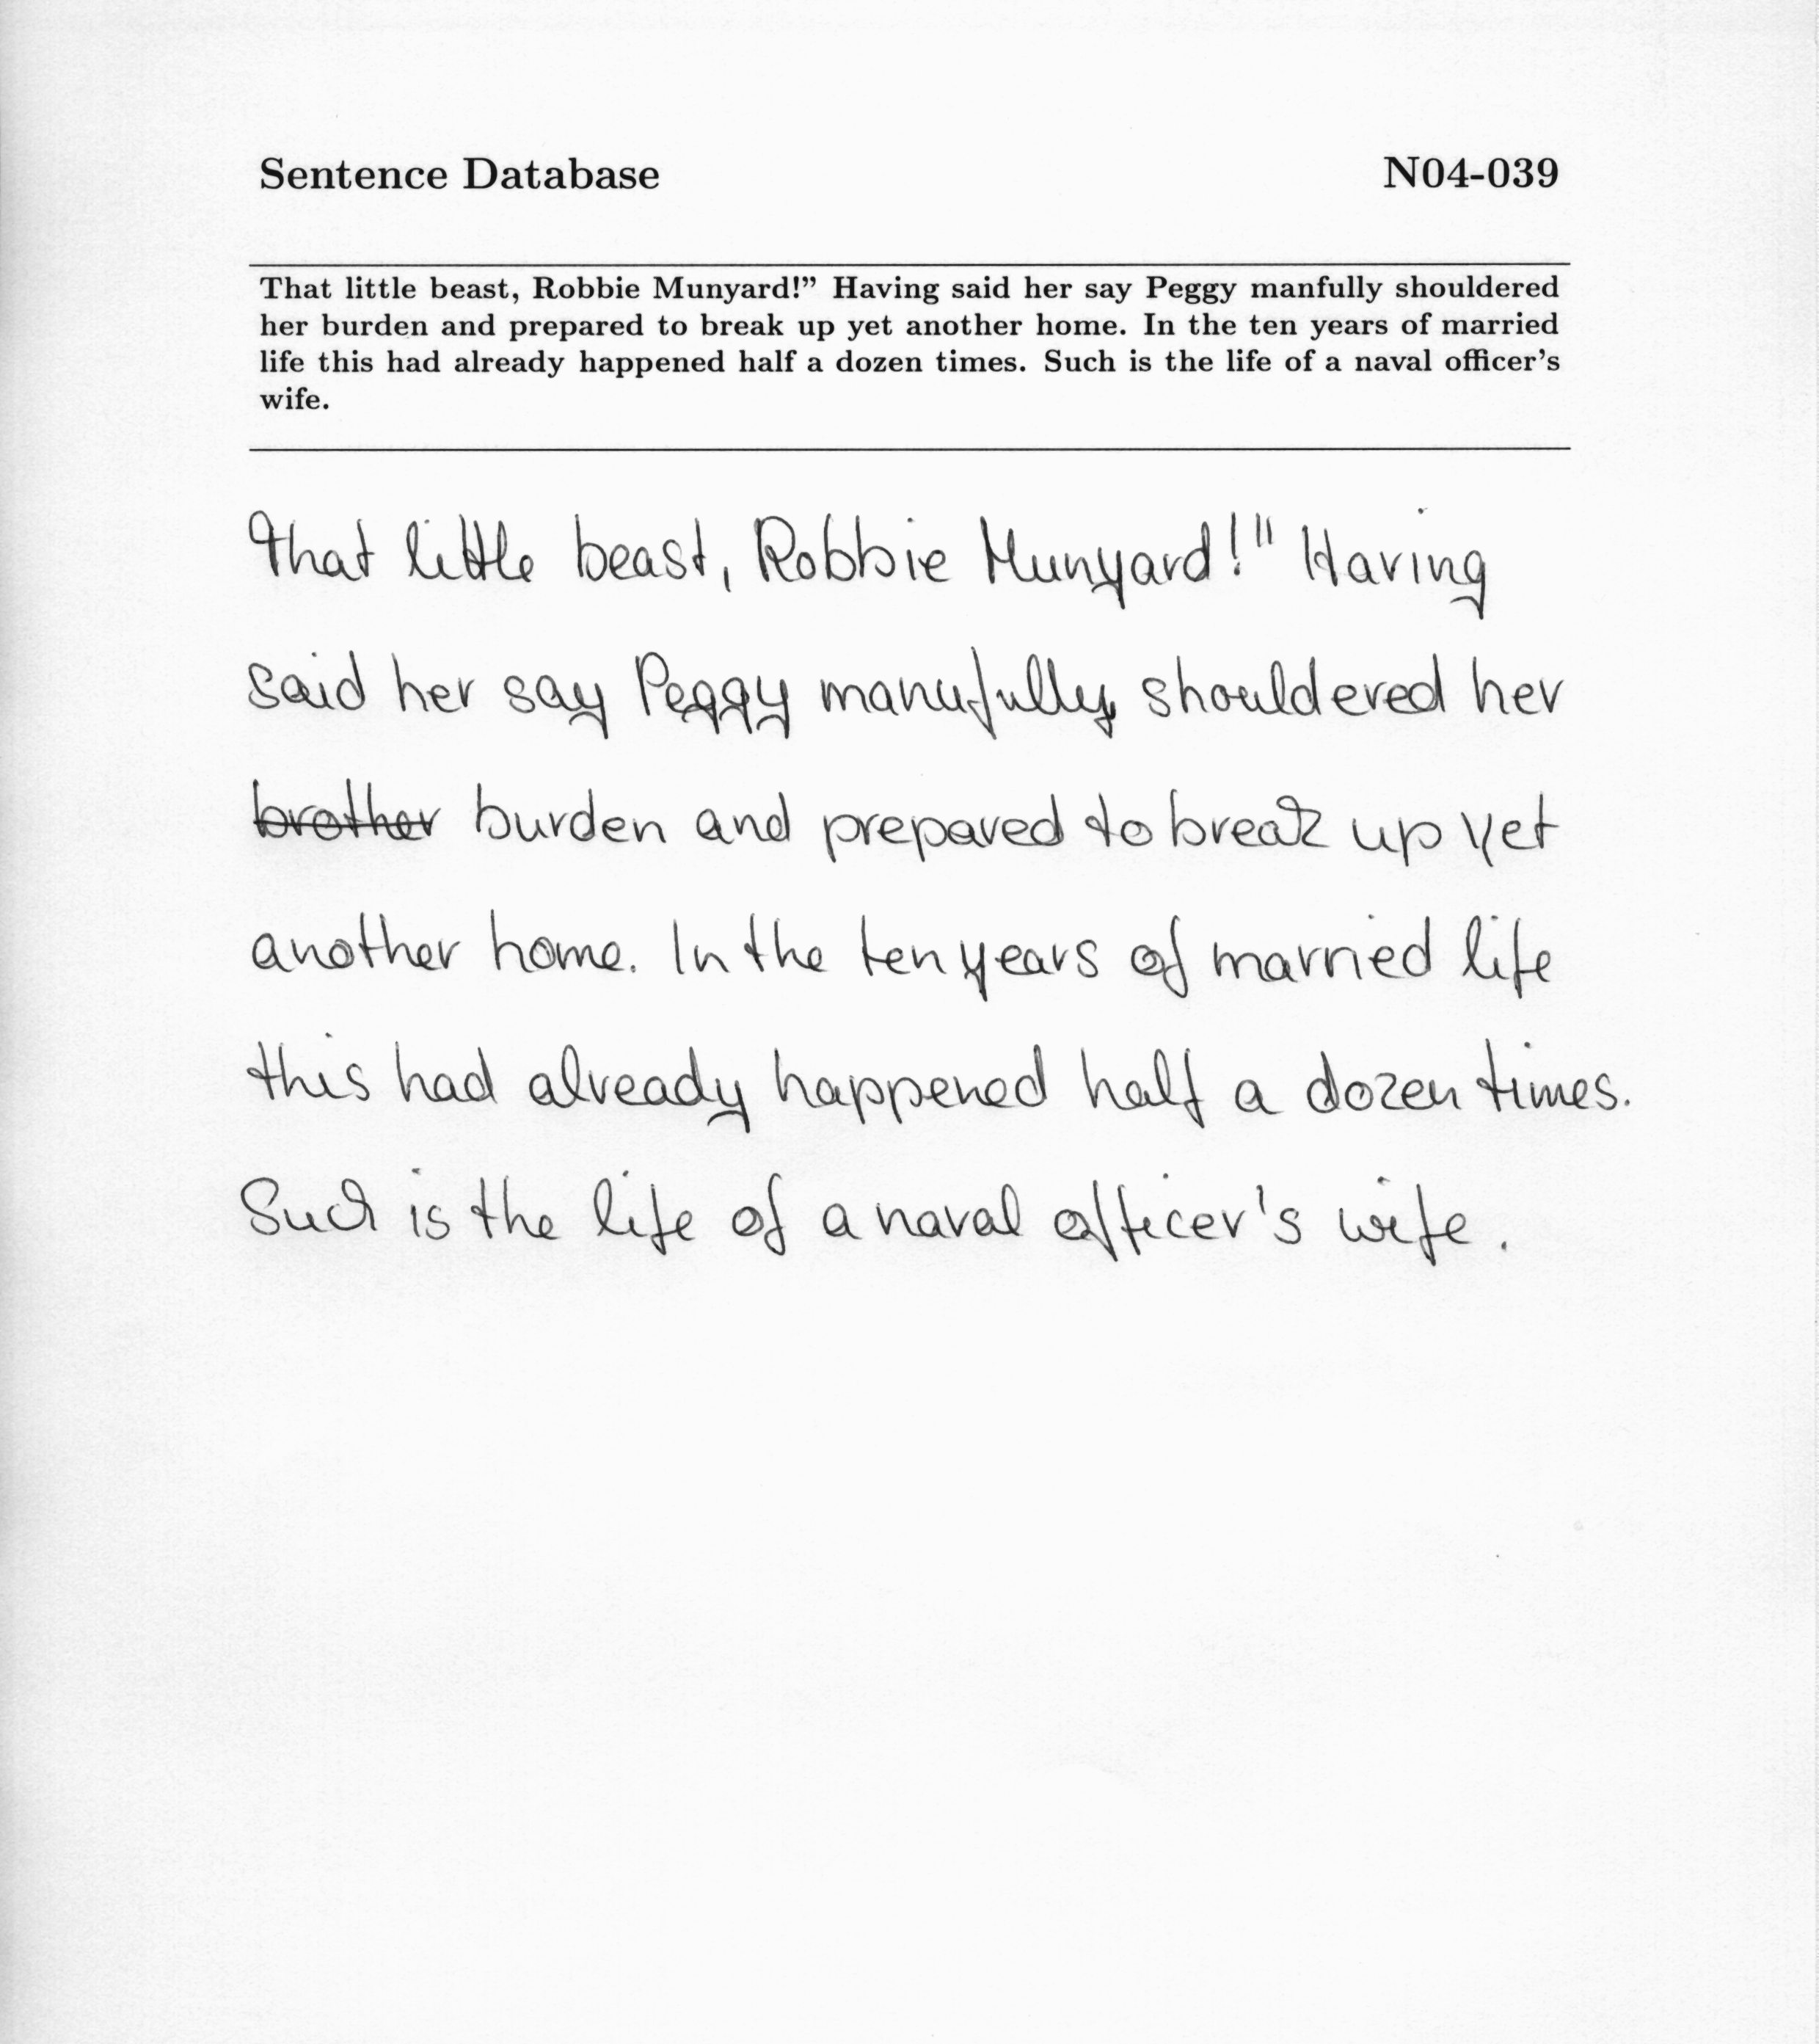 Sentence Database N04-039
That little beast, Robbie Munyard!” Having said her say Peggy manfully shouldered
her burden and prepared to break up yet another home. In the ten years of married
life this had already happened half a dozen times. Such is the life of a naval officer’s
wife.
That little beast, Robbie Munyard!" Having
said her say Peggy manufully shouldered her
brother burden and prepared to break up yet
another home. In the ten years of married life
this had already happened half a dozen times.
Such is the life of a naval officer's wife.